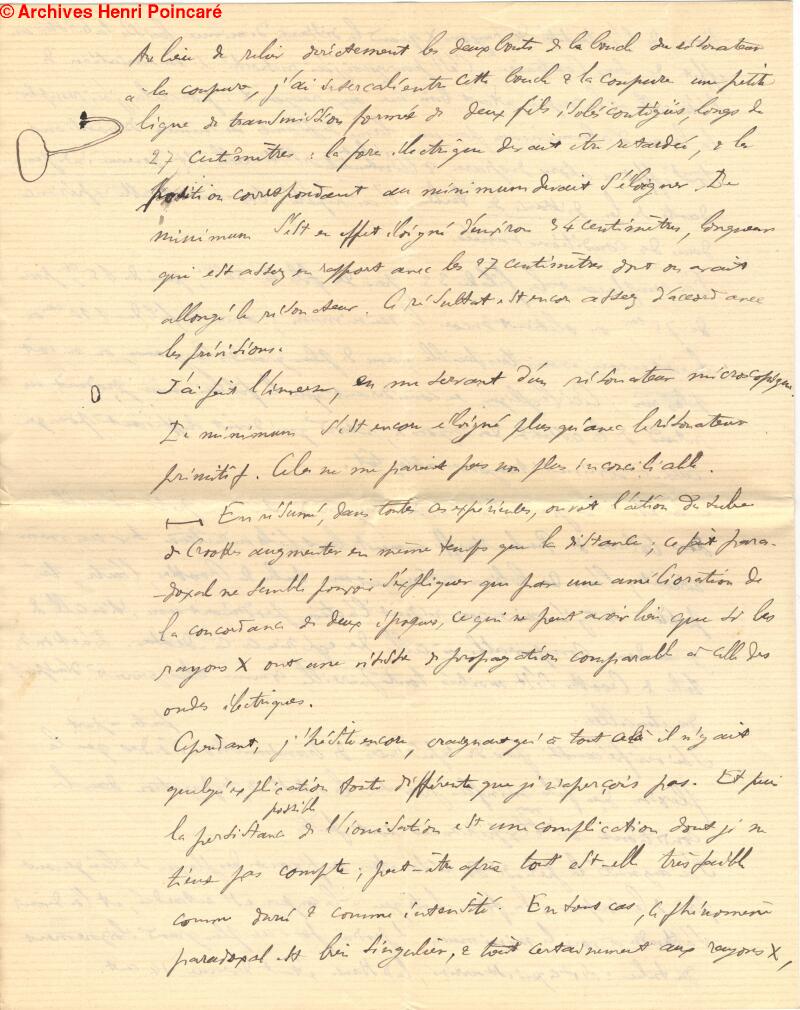 © Archives Henri Poincaré
Au lieu de relier directement les deux bouts de la boucle du résonateur
à la coupure, j'ai intercalé entre cette boucle & la coupure une petite
ligne de transmission formée de deux fils isolés contigüs, longs de
27 centimètres : la force électrique devait être retardée, & la
position correspondant au minimum devait s'éloigner. Le
minimum s'est en effet éloigné d'environ 34 centimètres, longueur
qui est assez en rapport avec les 27 centimètres dont on avait
allongé le résonateur. Ce résultat est encore assez d'accord avec
les prévisions.
J'ai fait l'inverse, en me servant d'un résonateur microscopique.
Le minimum s'est encore éloigné plus qu'avec le résonateur
primitif. Cela ne me parait pas non plus inconciliable.
En résumé, dans toutes ces expériences, on voit l'action du tube
de Crookes augmenter en même temps que la distance ; ce fait para-
doxal ne semble pouvoir s'expliquer que par une amélioration de
la concordance de deux époques, ce qui ne peut avoir lieu que si les
rayons X ont une vitesse de propagation comparable à celle des
ondes électriques.
Cependant, j'hésite encore, craignant qu'à tout cela il n'y ait
quelqu'explication toute différente que je n'aperçois pas. Et puis
possible
la persistance de l'ionisation est une complication dont je ne
tiens pas compte ; peut-être après tout est elle très faible
comme durée & comme intensité. En tous cas, ce phénomène
paradoxal est bien singulier, & tout certainement aux rayons X,